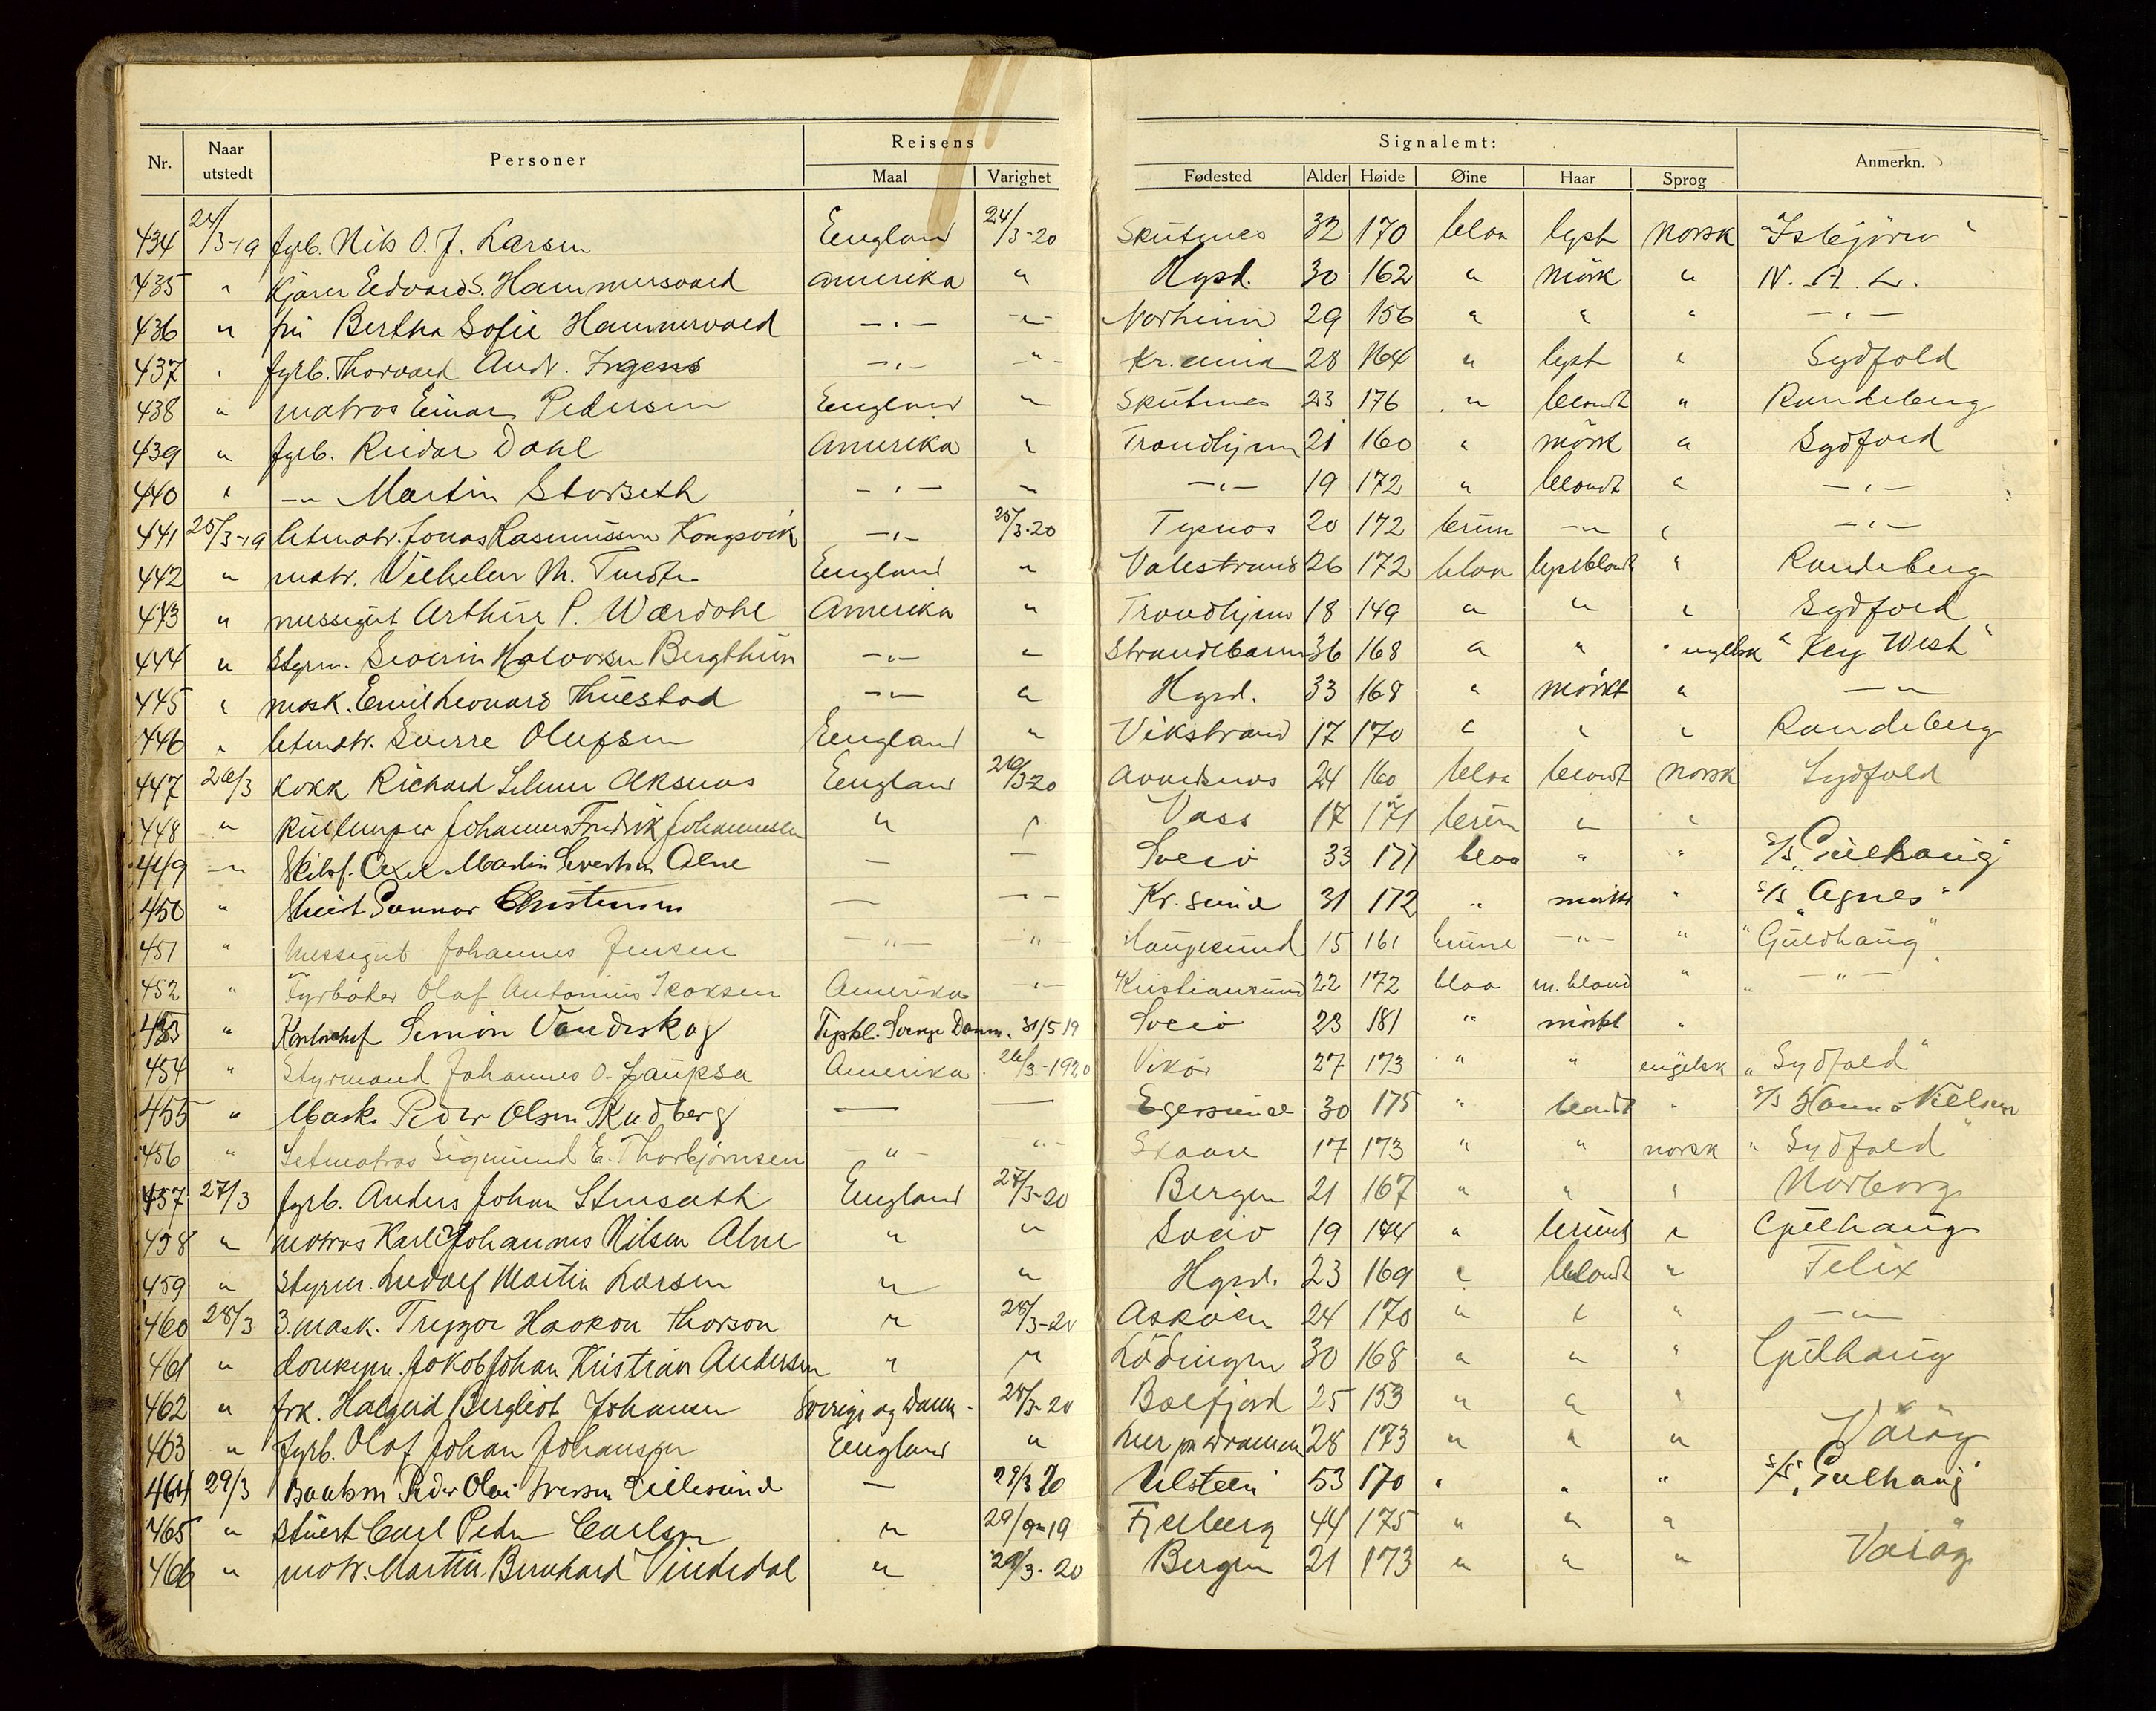 Nr. Naar utstedt Personer Reisens Maal Varighet Signalemt: Fødested Alder Høide Øine Haar Sprog Anmerkn.
434 24/3-19 fyrb. Nils O. J. Larsen England 24/3-20 Skutnes 32 170 blaa lyst norsk "Isbjörn"
435 " Edvard S. Hammersvard Amerika " Hgsd. 30 162 " mörk " N. A. L.
436 " fru Bertha Sofie Hammervard —"— —"— Norheim 29 156 " " " —"—
437 " fyrb. Thorvard Andr. Irgens —"— —"— Kr.ania 28 164 " lyst " Sydfold
438 " matros Einar Pedersen England " Skutnes 23 176 " blondt " Randeberg
439 " fyrb. Reidar Dahl Amerika " Trondhjem 21 160 " mörk " Sydfold
440 " —"— Martin Storseth —"— " —"— 19 172 " blondt " —"—
441 25/3-19 letmatr. Jonas Rasmussen Kongsvik —"— 25/3-20 Tysnes 20 172 brun —"— " —"—
442 " matr. Vilhelm M. England " Valestrand 26 172 blaa lysblondt " Randeberg
443 " messegut Arthur P. Wærdahl Amerika Trondhjem 18 149 " " " Sydfold
444 " styrm. Severin Halvorsen Bergthun —"— " Strandebarm 36 168 " " " engelsk "Key West"
445 " mask. Emil Leonard Thuestad —"— " Hgsd. 33 168 " mörkt " —"—
446 " letmatr. Sverre Olufsen England " Vikstrand 17 170 " " " Randeberg
447 26/3 kokk Richard Selmer Aksnes England 26/3-20 24 160 blaa blondt norsk Sydfold
448 " Johannes Fredrik Johannessen " " Voss 17 171 brun " "
449 —"— Skibsf. Axel Martin Sivertsen Alne — — Sveio 33 171 blaa " " S/S "Gulhaug"
450 " Stuert Gunnar Christensen — —"— Kr.sund 31 172 " mörkt " S/S "Agnes"
451 " Messegut Johannes Jensen —"— —"— Haugesund 15 161 brune —"— " "Guldhaug"
452 " Fyrböter Olaf Antonius Isaksen Amerika —"— Kristiansund 22 172 blaa m. blond " " —"—
453 " Kontorchef Simon Vandeskog Tyskl. Sverge Danm. 31/5 19 Sveio 23 181 " mörkt "
454 " Styrmand Johannes O. Laupsa Amerika 26/3-1920 Vikör 27 173 " " engelsk "Sydfold"
455 " Mask. Peder Olsen Rudberg — — Egersund 30 175 " blondt " S/S Hanna Nielsen
456 " Letmatros Sigmund E. Thorbjørnsen —"— —"— Skaare 17 173 " " norsk "Sydfold"
457 27/3 fyrb. Anders Johan England 27/3-20 Bergen 21 167 " " " Norborg
458 " matros Karl Johannes Nilsen Alne " " Sveio 19 174 " brunt " Gulhaug
459 " styrm. Ludolf Martin Larsen " " Hgsd. 23 169 " blondt " Felix
460 28/3 3.mask. Trygve Haakon Thorson " 28/3-20 Asköen 24 170 " " " —"—
461 " donkeym. Jakob Johan Kristian Andersen " " Lödingen 30 168 " " " Gulhaug
462 " frk. Halgerd Bergliot Johansen Sverige og Danm. 28/3-20 Bolfjord 25 153 " " "
463 " fyrb. Olaf Johan Johansen England " Lier pr Drammen 28 173 " " " Varög
464 29/3 Baatsm Peder Olai Iversen Lillesund — 29/3 20 Ulstein 53 170 " " " S/S "Gulhaug"
465 " stuert Carl Peder Carlsen " 29/9-19 Fjelberg 44 175 " " " "
466 " matr. Martin Bernhard Vindedal " 29/3-20 Bergen 21 173 " " " Varög